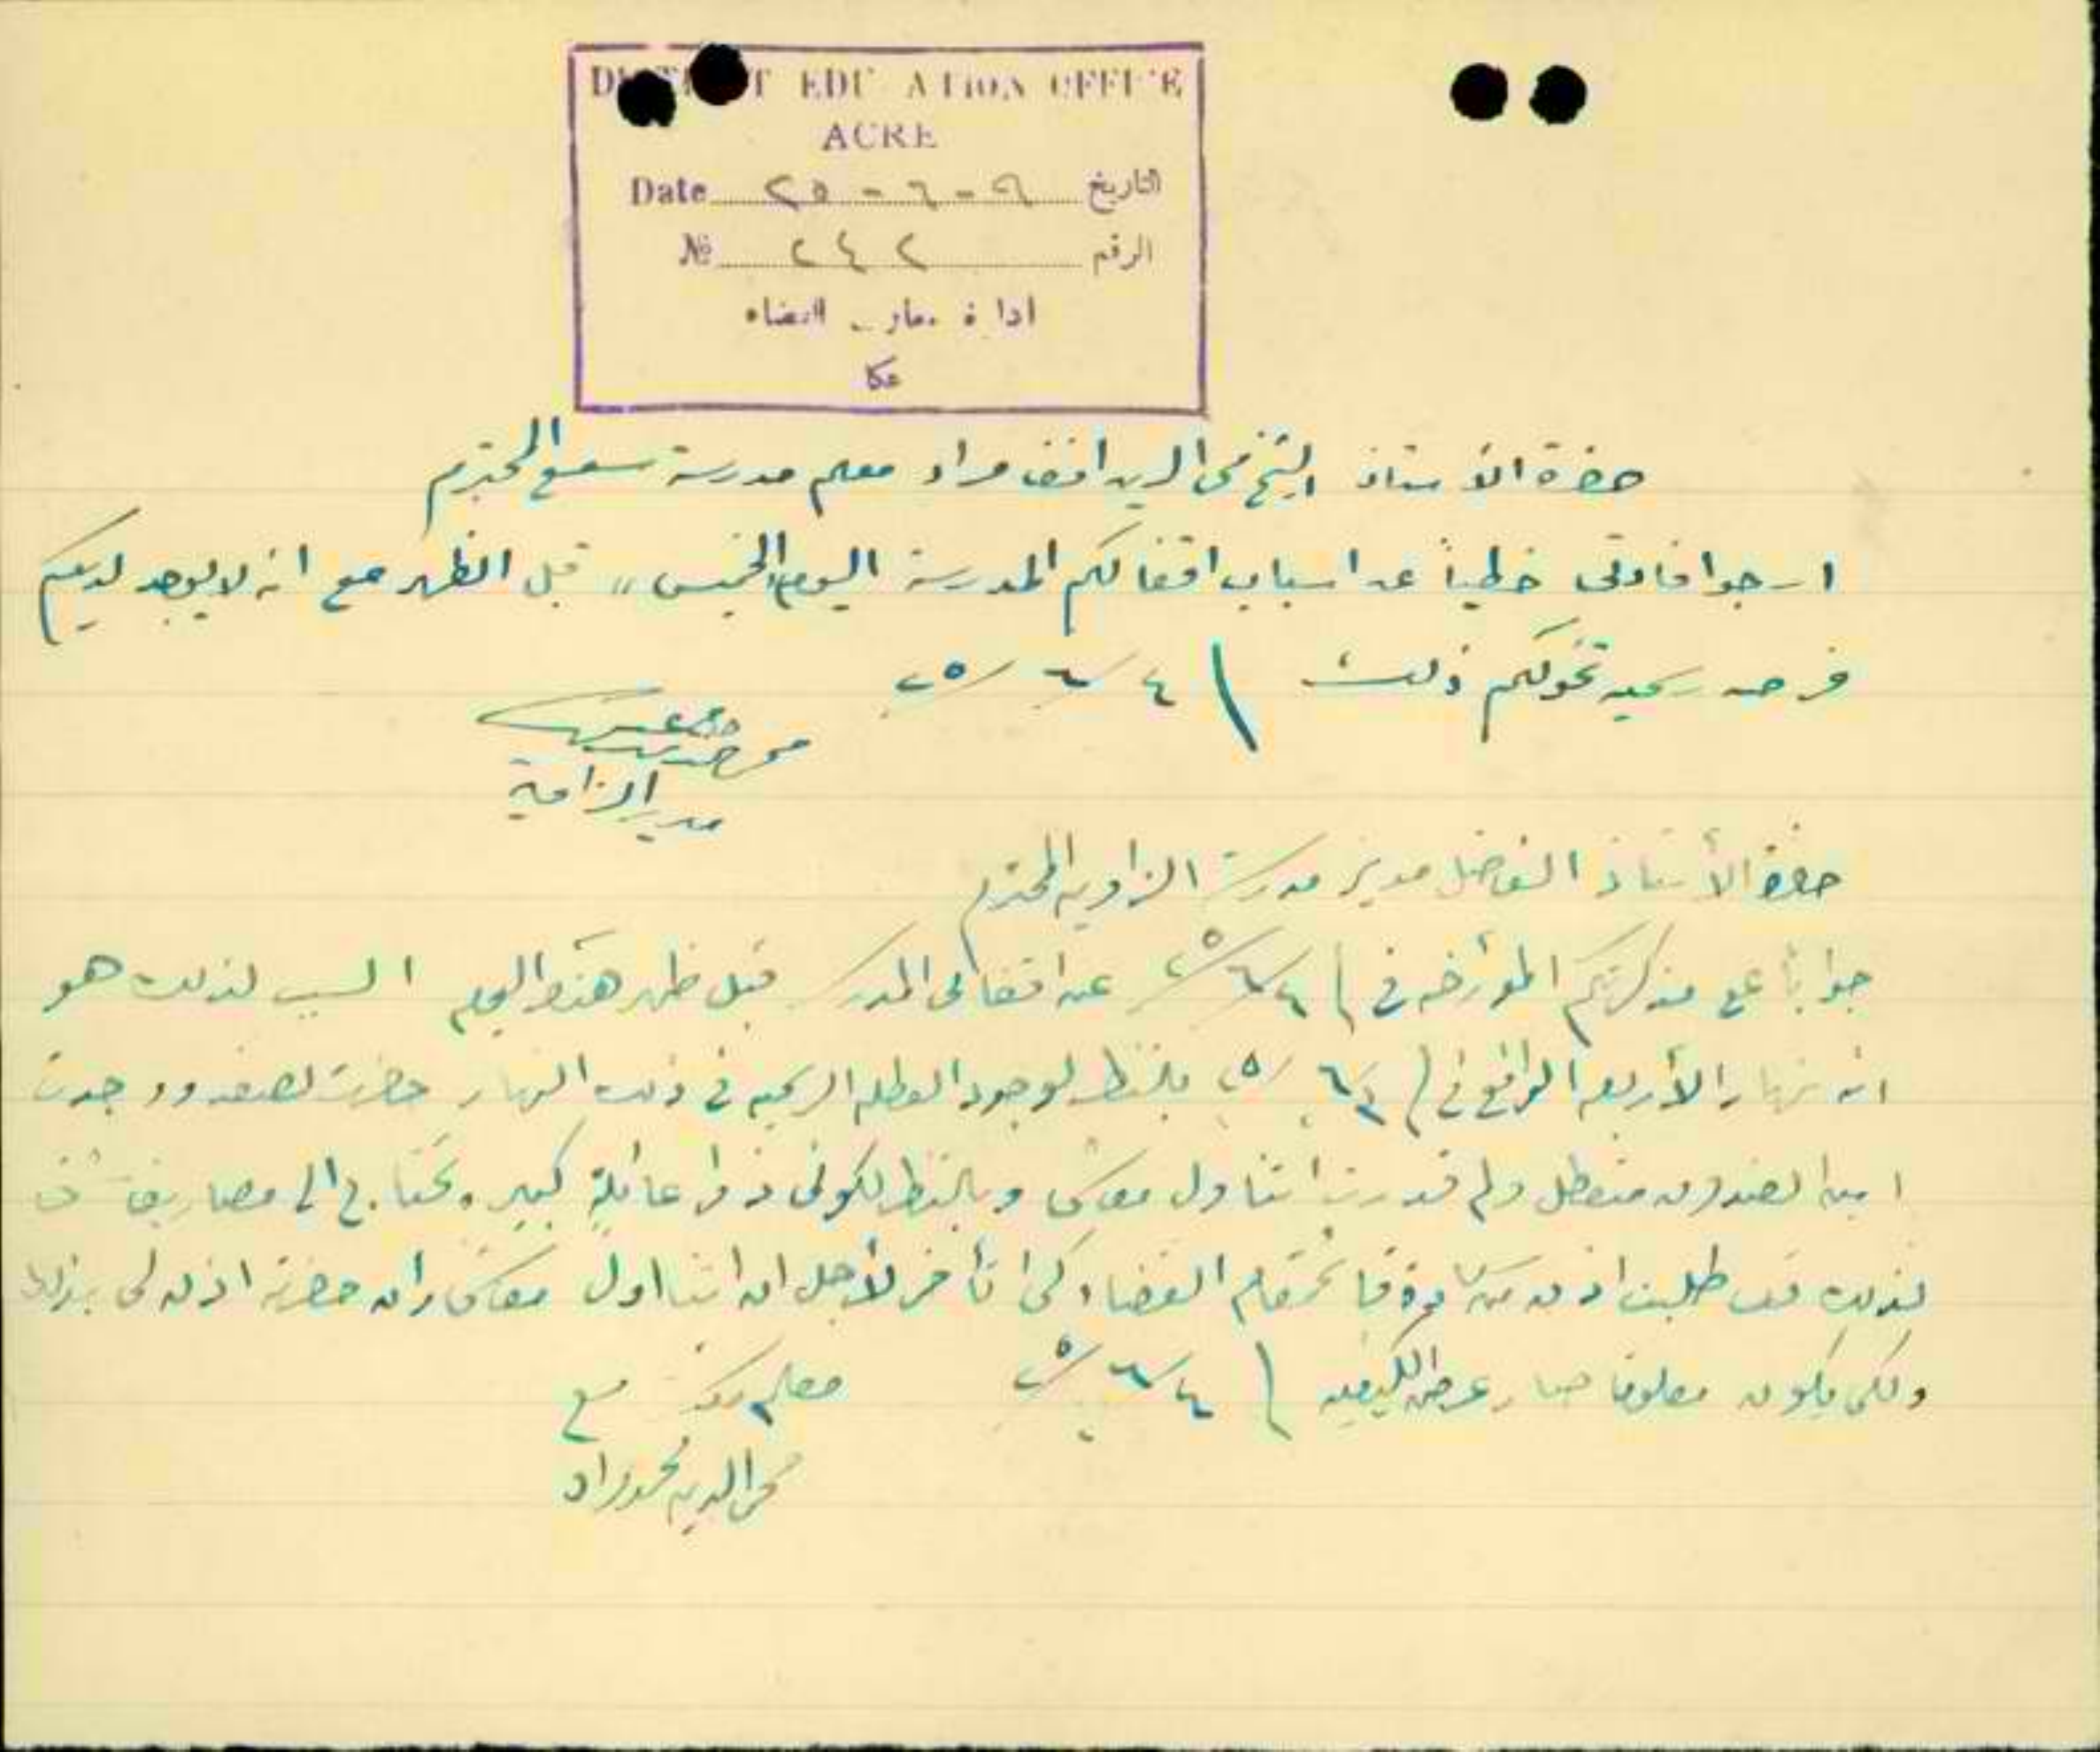 DISTRICT EDUCATION OFFICE
ACRE
Date ٩ - ٦ - ٢٥ التاريخ
№ ٢٤٢ الرقم
ادارة معارف القضاء
عكا
حضرة الاستاذ الشيخ محي الدين افندي مراد معلم مدرسة سمع المحترم
ارجو افادتي خطياً عن اسباب اقفالكم المدرسة اليوم "الخميس" قبل الظهر مع انه لا يوجد لديكم
فرصه رسميه تخولكم ذلك ٤/٦/٢٥
مدير الزاوية
حضرة الأستاذ الفاضل مدير مدرسة الزاويه المحترم
جواباً على مذكرتكم المؤرخه في ٤/٦/٢٥ عن اقفالي المدرسة قبل ظهر هذا اليوم السبب لذلك هو
انه نهار الأربعه الواقع في ٣/٦/٢٥ بالنظر لوجود العطله الرسميه في ذلك النهار حضرت لصفد ووجدت
امين الصندوق متعطل ولم قدرت اتناول معاشي وبالنظر لكوني ذو عائلة كبيره وتحتاج الى مصاريف
لذلك قد طلبت اذن من قائمقام القضاء كي اتأخر لأجل ان اتناول معاشي وان حضرته اذن لي بذلك
ولكي يكون معلوما صار عرض الكيفيه ٤/٦/٢٥
معلم مدرسة سمع
محي الدين محمد مراد